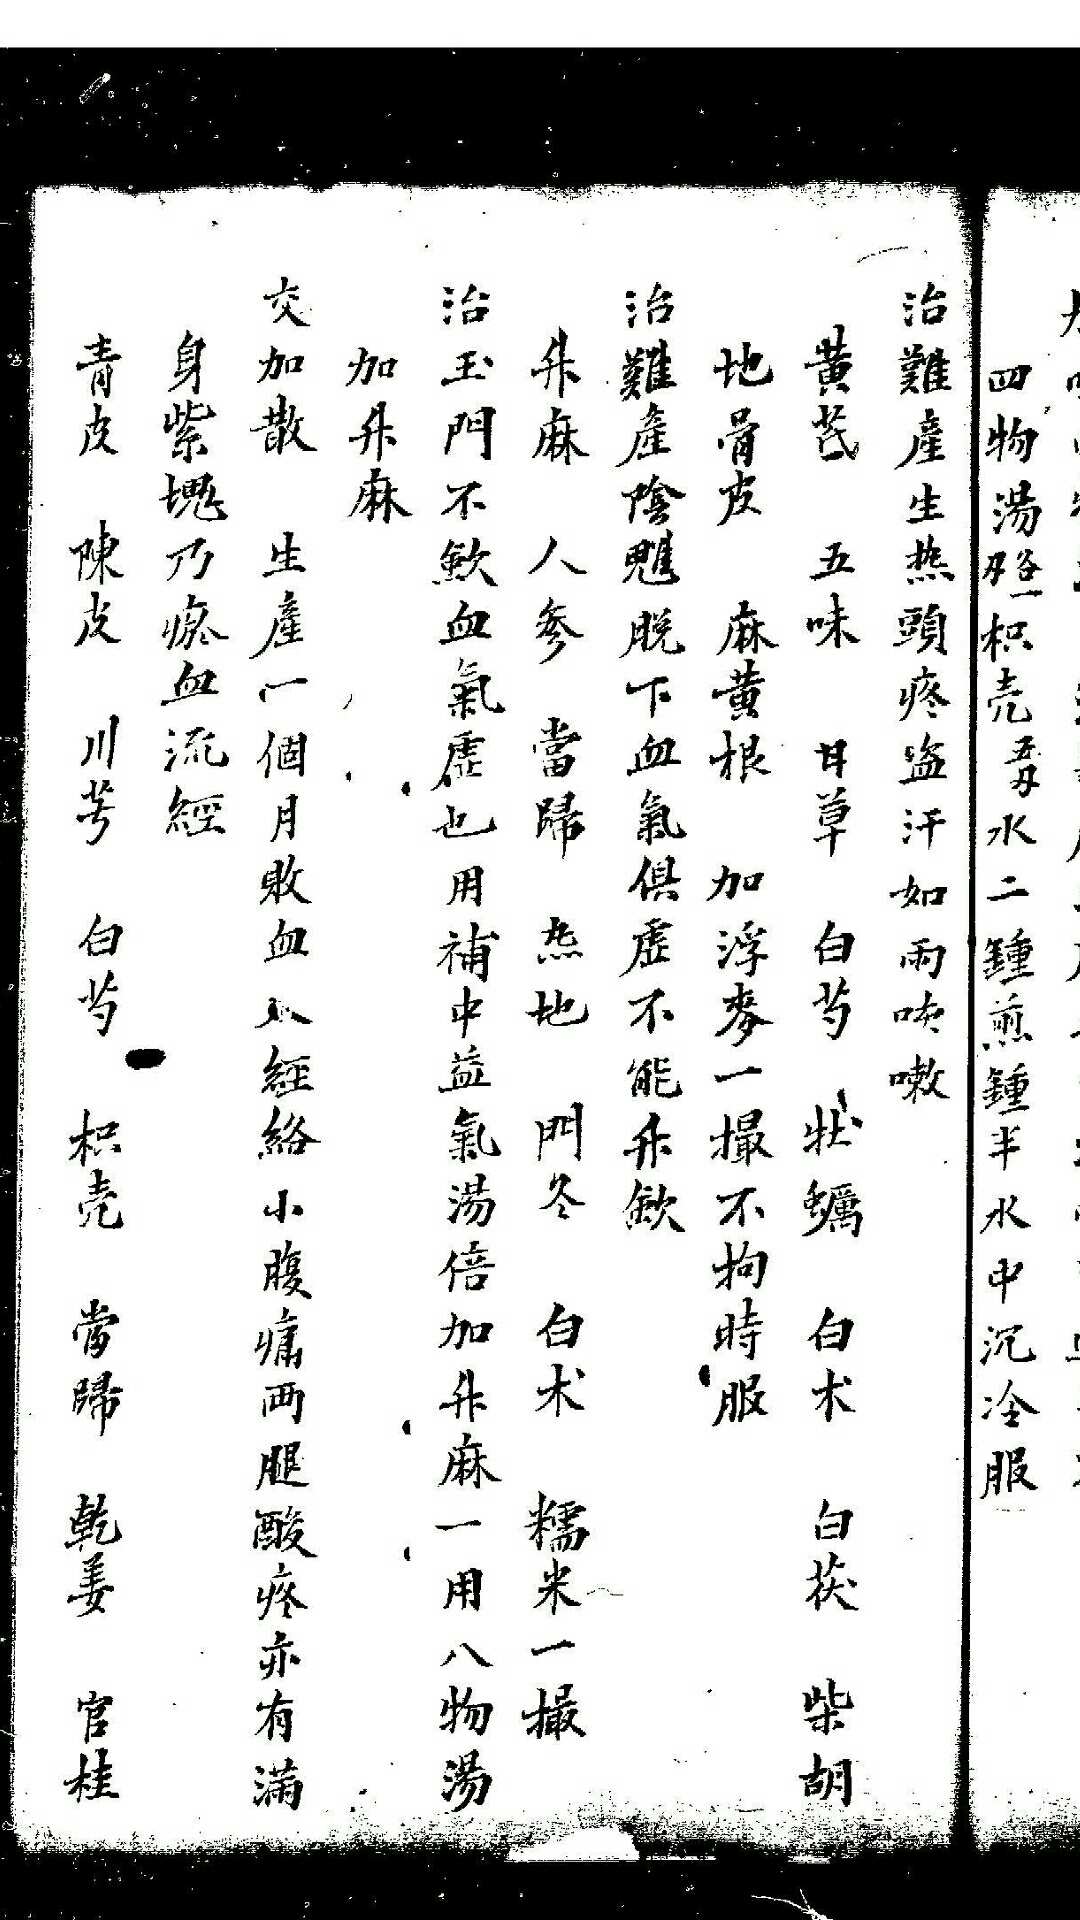 四物湯 枳壳 水二鍾煎鍾半水中沉冷服
治難產生热頭疼盗汗如雨咳嗽
黄芪 五味 甘草 白芍 牡蠣 白术 白茯 柴胡
地骨皮 麻黄根 加浮麥一撮不拘時服
治難產陰䰟脱下血氣俱虚不能升歛
升麻 人參 當歸 热地 門冬 白术 糯米一撮
治玉門不歛血氣虚也用補中益氣湯倍加升麻一用八物湯
加升麻
交加散 生產一個月敗血入經絡小腹痛両腿酸疼亦有滿
身紫塊乃瘀血流經
青皮 陳皮 川芎 白芍 枳壳 當歸 乾姜 官桂